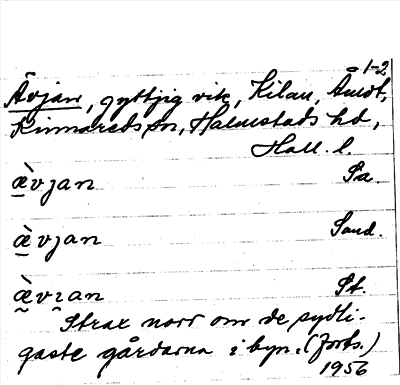 1-2
Ävjan, gyttjig vik, Kilan, Åmot,
Kinnareds sn, Halmstads hd,
Hall. l.
ävjan Sa.
ävjan Sand.
ävıan St.
Strax norr om de sydli-
gaste gårdarna i byn. (forts.)
1956